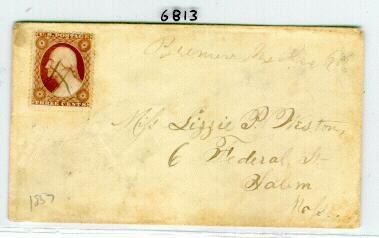 6813
U.S. POSTAGE
THREE CENTS
Miss Lizzie P. Weston,
6 Federal St
Salem
Mass.
1857